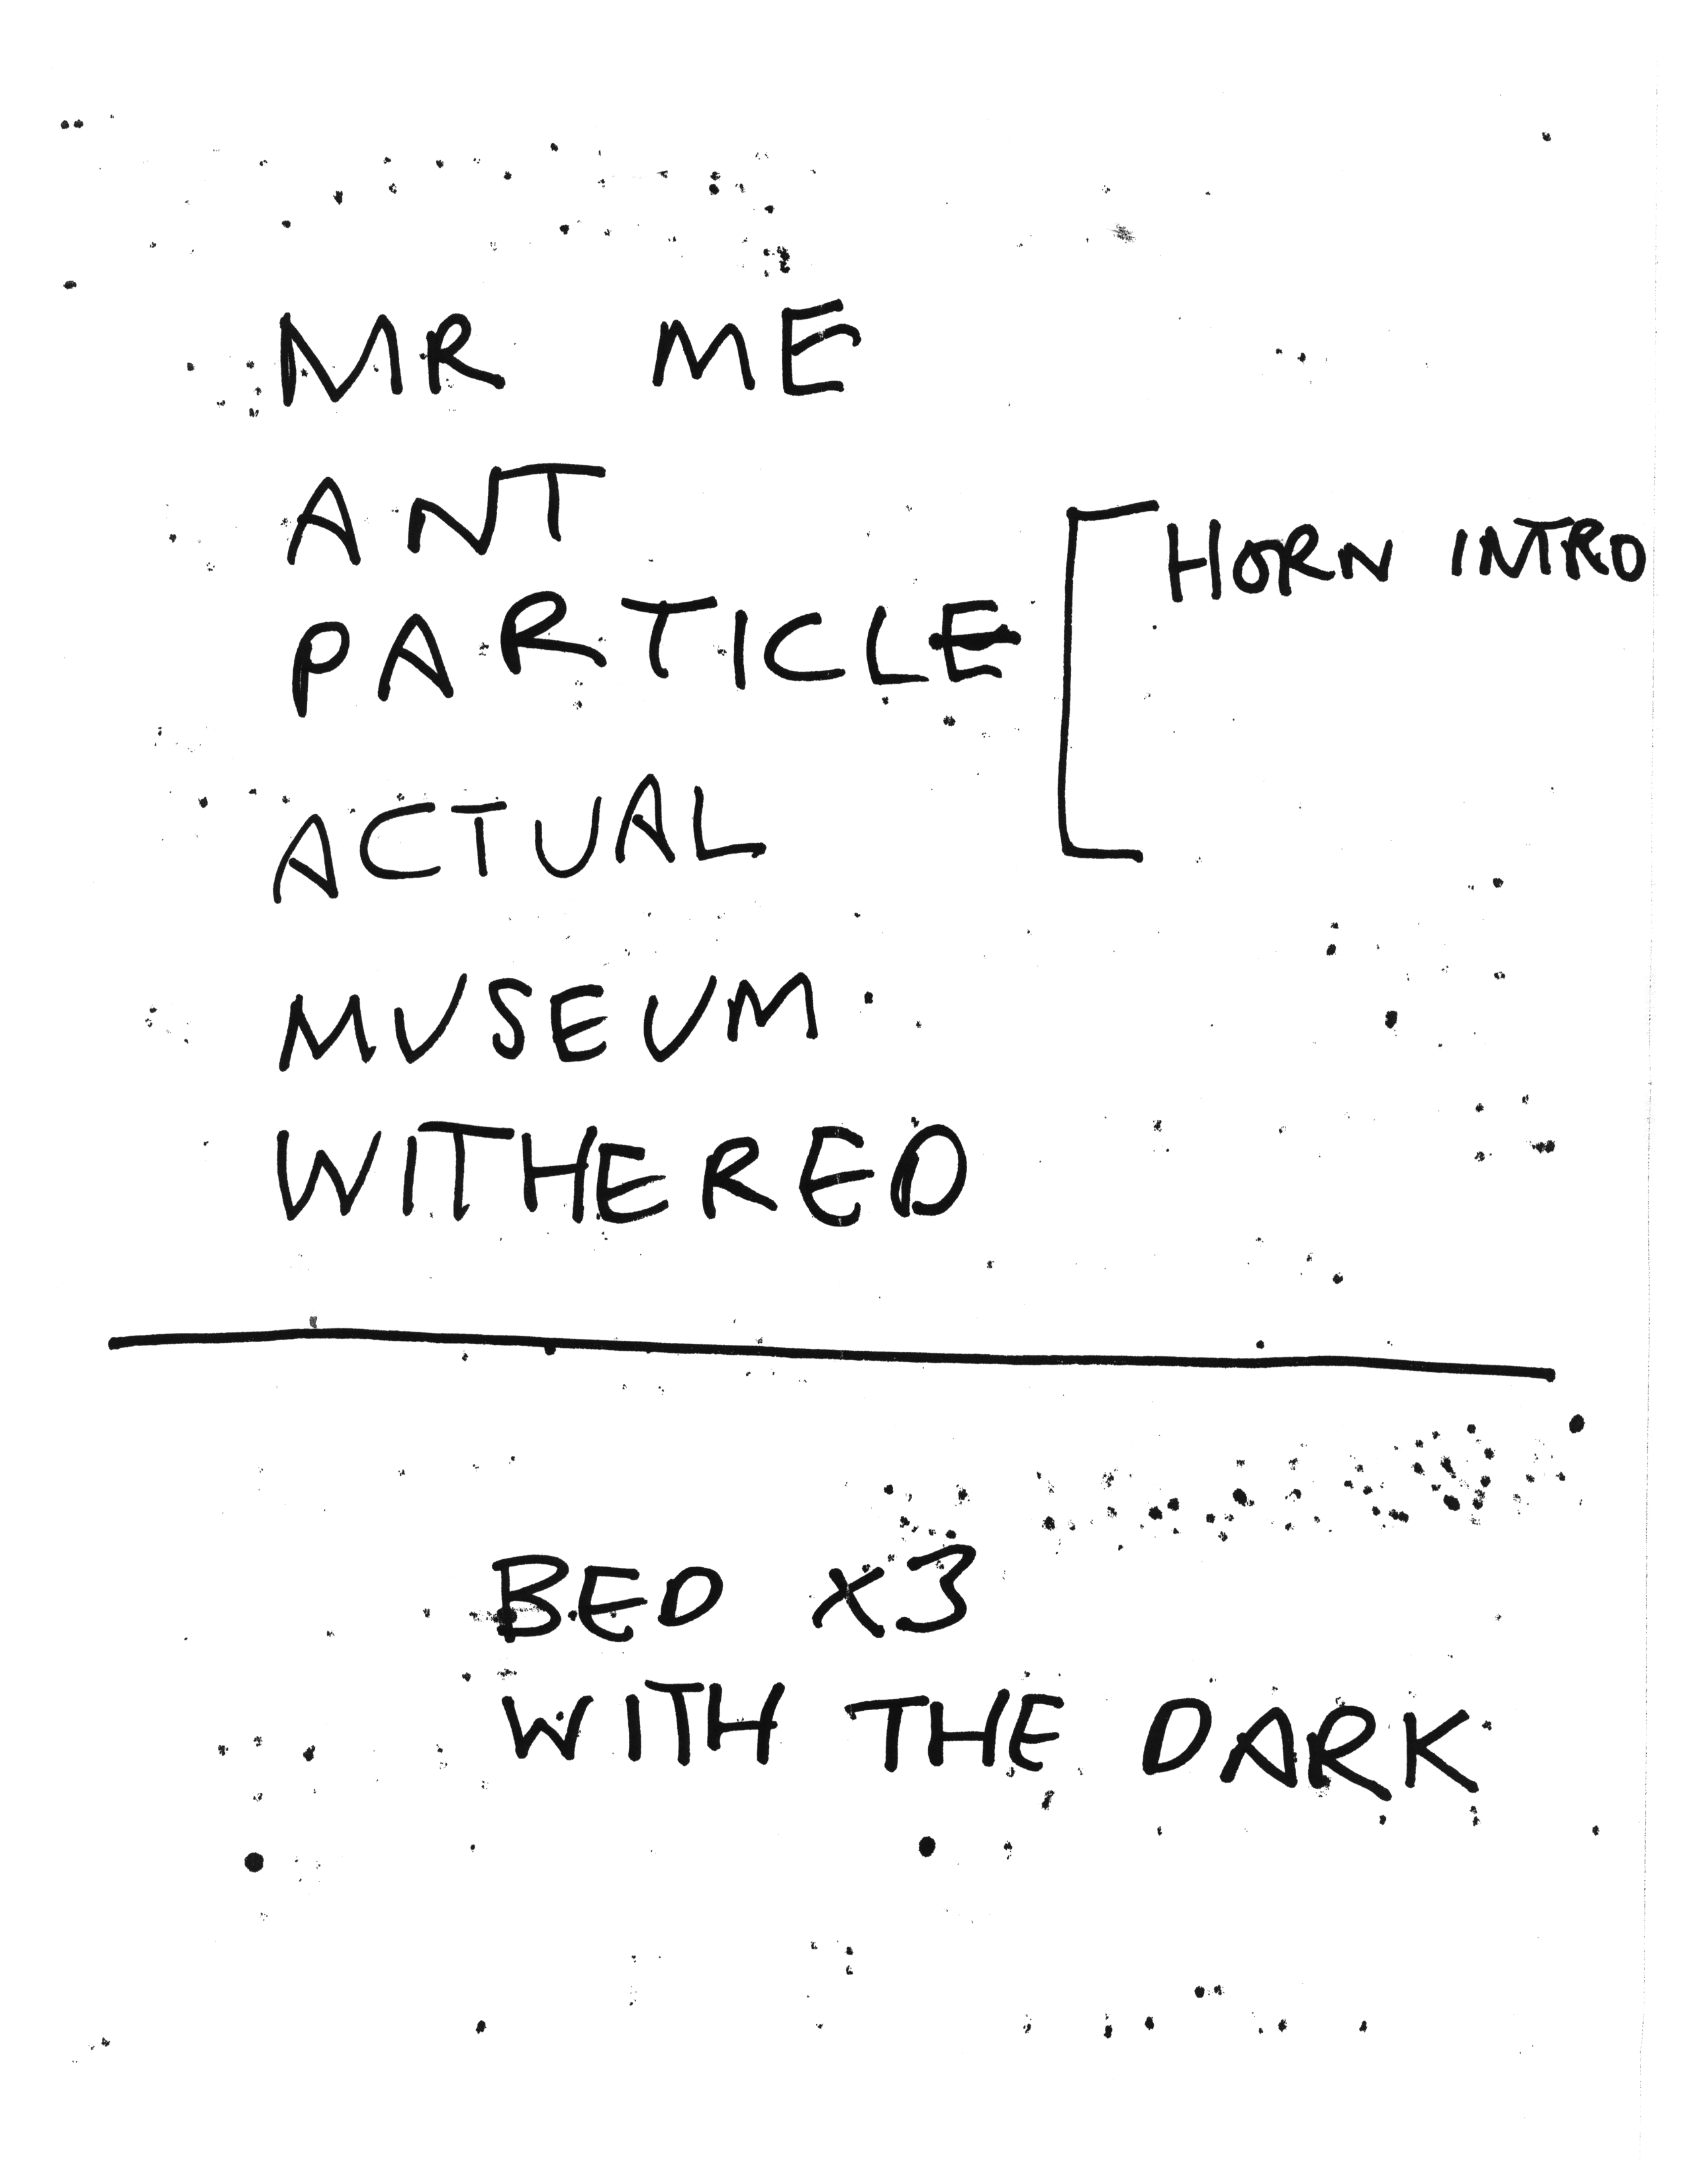 MR ME
ANT
HORN INTRO
PARTICLE
ACTUAL
MUSEUM
WITHERED
BED x3
WITH THE DARK